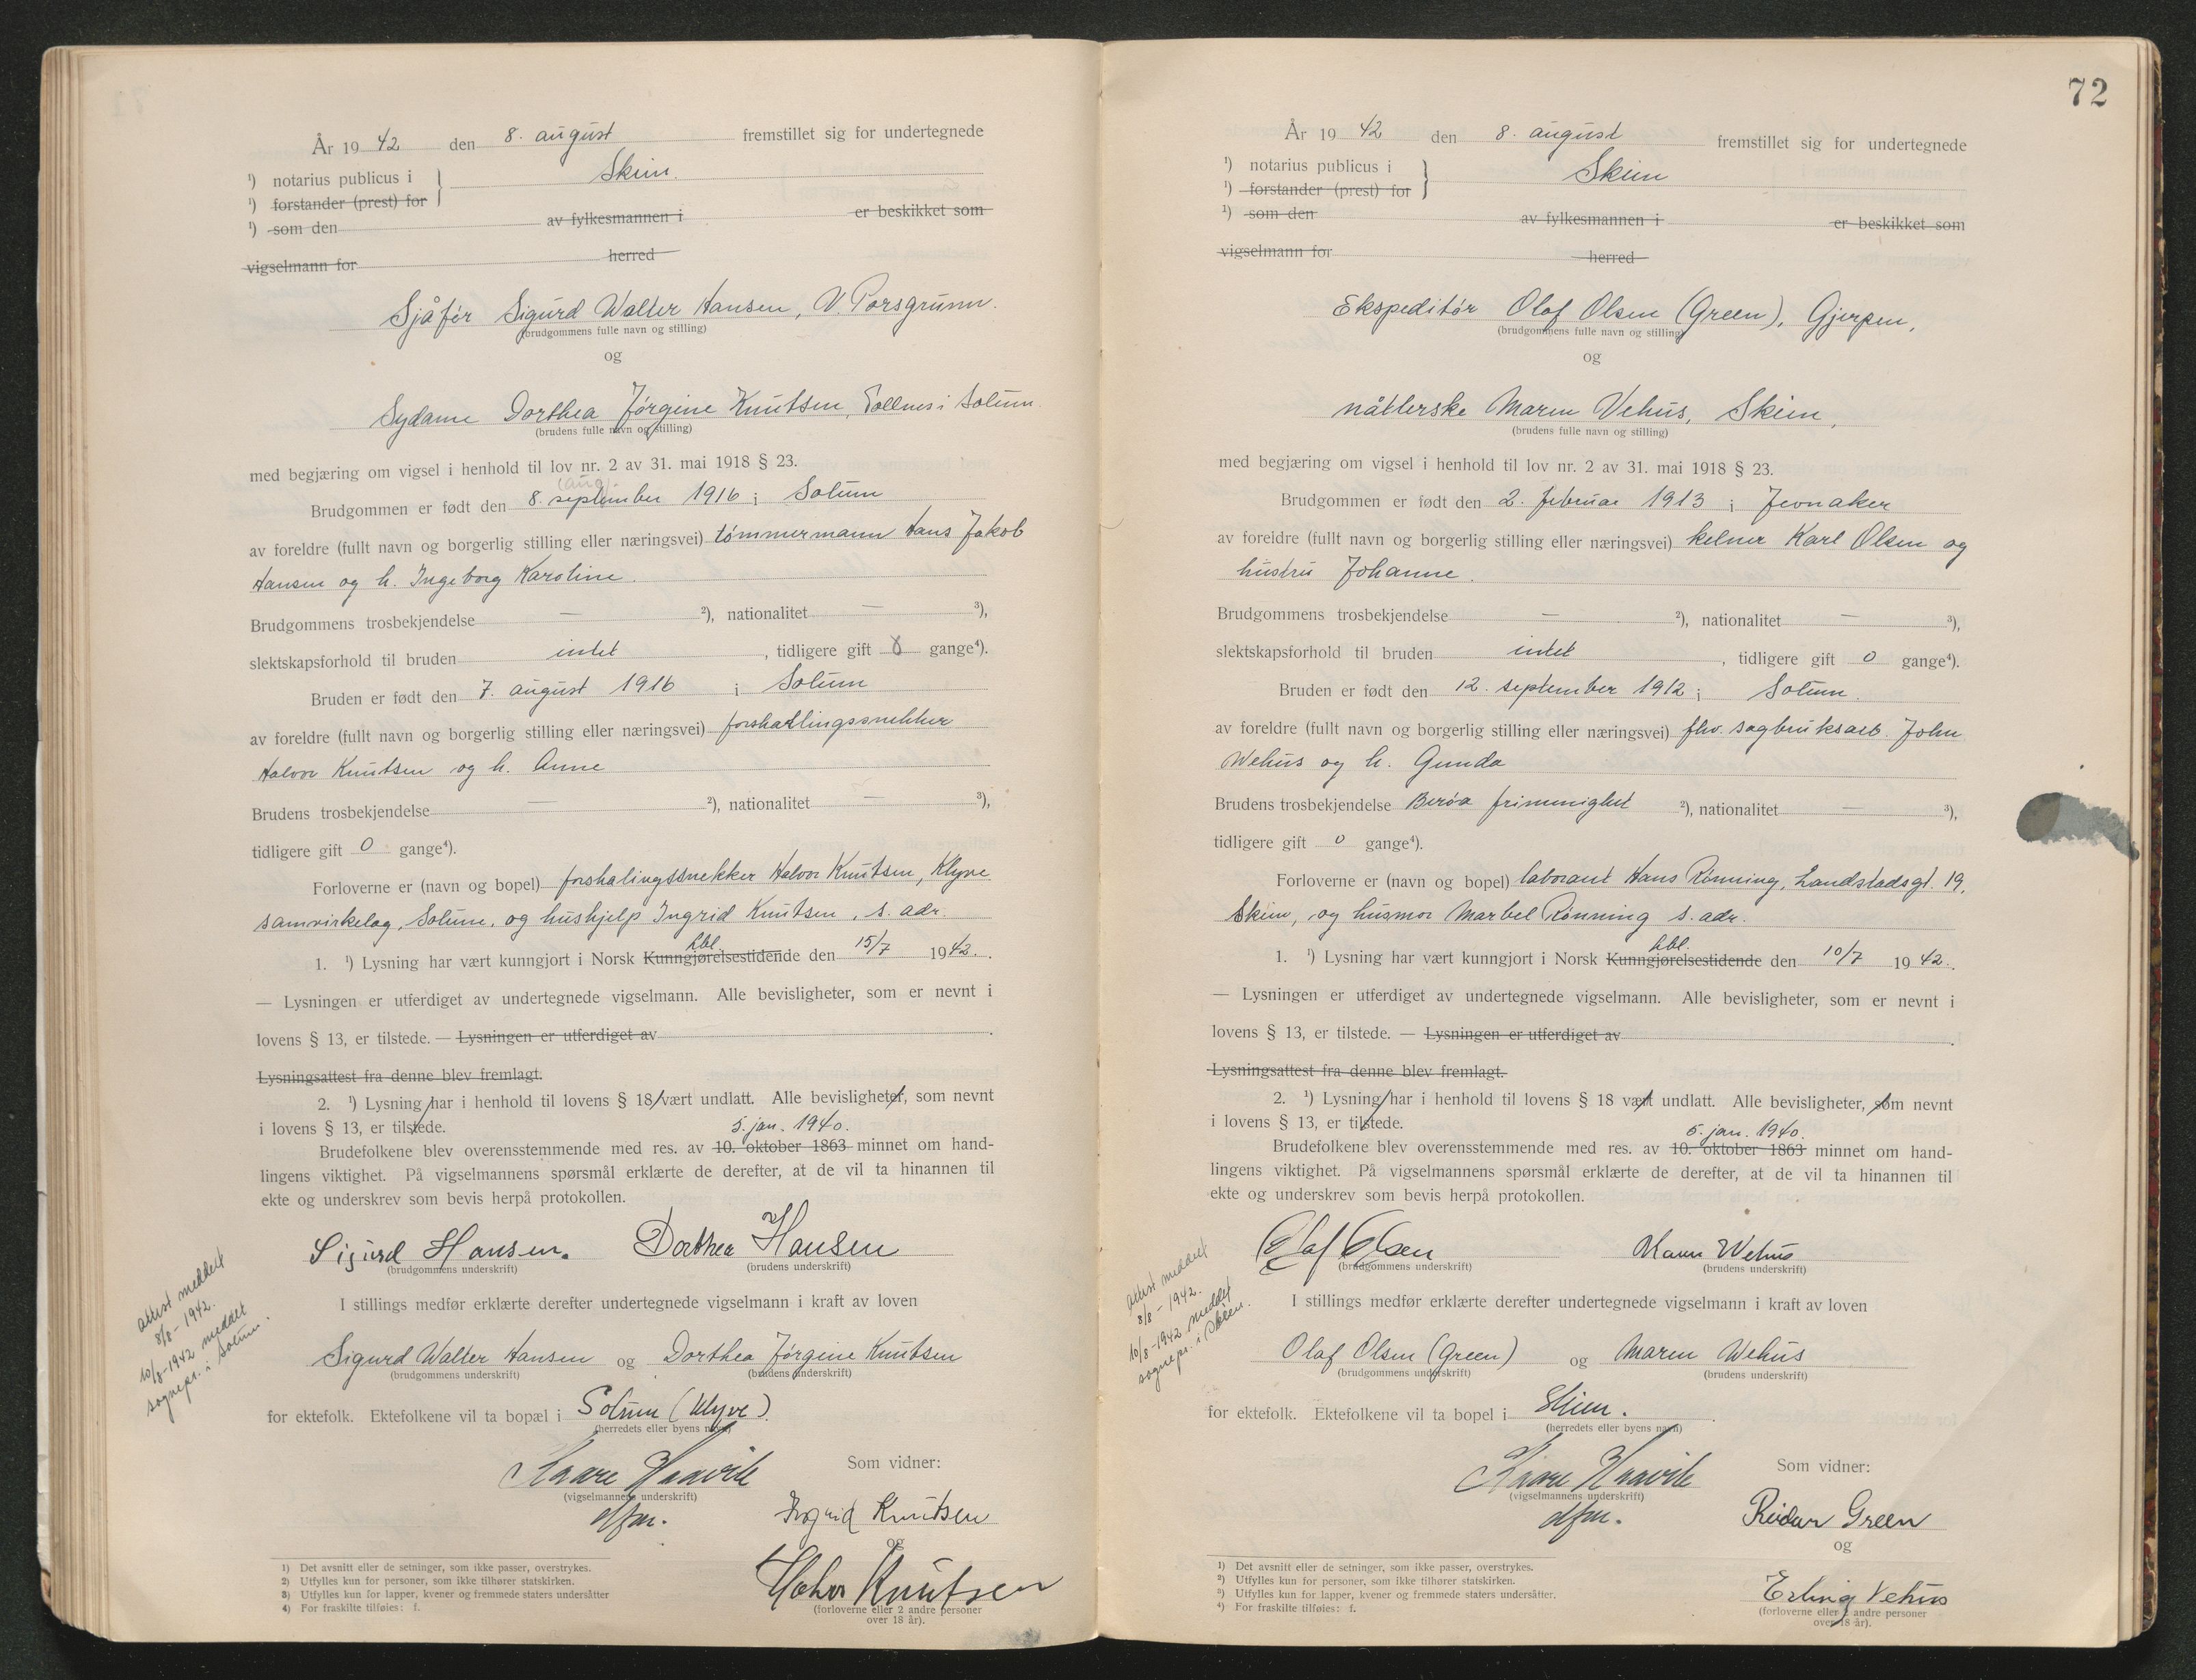 År 19 42 den 8. august fremstillet sig for undertegnede
¹) notarius publicus i
Skien.
¹) forstander (prest) for
¹) som den av fylkesmannen i er beskikket som
vigselmann for herred
Sjåfør Sigurd Walter Hansen, V. Porsgrunn.
(brudgommens fulle navn og stilling)
og
Sydame Dorthea Jørgine Knutsen, Tollnes i Solum.
(brudens fulle navn og stilling)
med begjæring om vigsel i henhold til lov nr. 2 av 31. mai 1918 § 23.
(aug).
Brudgommen er født den 8. september 1916 i Solum
av foreldre (fullt navn og borgerlig stilling eller næringsvei) tømmermann Hans Jakob
Hansen og h. Ingeborg Karoline.
Brudgommens trosbekjendelse — ²), nationalitet — ³),
slektskapsforhold til bruden intet, tidligere gift 0 gange⁴).
Bruden er født den 7. august 1916 i Solum
av foreldre (fullt navn og borgerlig stilling eller næringsvei) forhallingssnekker
Halvor Knutsen og h. Anne
Brudens trosbekjendelse — ²), nationalitet — ³),
tidligere gift 0 gange⁴).
Forloverne er (navn og bopel) forshalingssnekker Halvor Knutsen, Klyve
samvirkelag, Solum, og hushjelp Ingrid Knutsen, s. adr.
hbl.
1. ¹) Lysning har vært kunngjort i Norsk Kunngjørelsestidende den 15/7 1942.
— Lysningen er utferdiget av undertegnede vigselmann. Alle bevisligheter, som er nevnt i
lovens § 13, er tilstede. — Lysningen er utferdiget av .
Lysningsattest fra denne blev fremlagt.
2. ¹) Lysning har i henhold til lovens § 18 vært undlatt. Alle bevisligheter, som nevnt
i lovens § 13, er tilstede.
5. jan. 1940.
Brudefolkene blev overensstemmende med res. av 10. oktober 1863 minnet om hand-
lingens viktighet. På vigselmannens spørsmål erklærte de derefter, at de vil ta hinannen til
ekte og underskrev som bevis herpå protokollen.
Sigurd Hansen. Dorthea Hansen
(brudgommens underskrift) (brudens underskrift)
attest meddelt
8/8-1942.
10/8-1942 meddelt
sognepr. i Solum.
I stillings medfør erklærte derefter undertegnede vigselmann i kraft av loven
Sigurd Walter Hansen og Dorthea Jørgine Knutsen
(brudgommens underskrift) (brudens underskrift)
for ektefolk. Ektefolkene vil ta bopæl i Solum (Klyve)
(herredets eller byens navn)
Kaare Haavik
(vigselmannens underskrift)
dfm.
Som vidner:
Ingrid Knutsen
og
Halvor Knutsen
(forloverne eller 2 andre personer
over 18 år).
1) Det avsnitt eller de setninger, som ikke passer, overstrykes.
2) Utfylles kun for personer, som ikke tilhører statskirken.
3) Utfylles kun for lapper, kvener og fremmede staters undersåtter
4) For fraskilte tilføies: f.
72
År 19 42 den 8. august fremstillet sig for undertegnede
¹) notarius publicus i
Skien
¹) forstander (prest) for
¹) som den av fylkesmannen i er beskikket som
vigselmann for herred
Ekspeditør Olaf Olsen (Green), Gjerpen,
(brudgommens fulle navn og stilling)
og
nåtlerske Maren Vehus, Skien,
(brudens fulle navn og stilling)
med begjæring om vigsel i henhold til lov nr. 2 av 31. mai 1918 § 23.
Brudgommen er født den 2. februar 1913 i Jevnaker
av foreldre (fullt navn og borgerlig stilling eller næringsvei) kelner Karl Olsen og
hustru Johanne.
Brudgommens trosbekjendelse — ²), nationalitet — ³),
slektskapsforhold til bruden intet, tidligere gift 0 gange⁴).
Bruden er født den 12. september 1912 i Solum.
av foreldre (fullt navn og borgerlig stilling eller næringsvei) fhv. sagbruksarb. John
Wehus og h. Gunda
Brudens trosbekjendelse Berøa frimenighet ²), nationalitet — ³),
tidligere gift 0 gange⁴).
Forloverne er (navn og bopel) laborant Hans Rønning, Landstadsgt. 19,
Skien, og husmor Marbel Rønning s. adr.
hbl.
1. ¹) Lysning har vært kunngjort i Norsk Kunngjørelsestidende den 10/7 19 42.
— Lysningen er utferdiget av undertegnede vigselmann. Alle bevisligheter, som er nevnt i
lovens § 13, er tilstede. — Lysningen er utferdiget av .
Lysningsattest fra denne blev fremlagt.
2. ¹) Lysning har i henhold til lovens § 18 vært undlatt. Alle bevisligheter, som nevnt
i lovens § 13, er tilstede.
5. jan. 1940.
Brudefolkene blev overensstemmende med res. av 10. oktober 1863 minnet om hand-
lingens viktighet. På vigselmannens spørsmål erklærte de derefter, at de vil ta hinannen til
ekte og underskrev som bevis herpå protokollen.
Olaf Olsen Maren Wehus
(brudgommens underskrift) (brudens underskrift)
attest meddelt
8/8-1942.
10/8-1942 meddelt
sognepr. i Skien.
I stillings medfør erklærte derefter undertegnede vigselmann i kraft av loven
Olaf Olsen (Green) og Maren Wehus
(brudgommens underskrift) (brudens underskrift)
for ektefolk. Ektefolkene vil ta bopel i Skien.
(herredets eller byens navn)
Kaare Haavik
(vigselmannens underskrift)
dfm.
Som vidner:
Reidar Green
og
Erling Vehus
(forloverne eller 2 andre personer
over 18 år).
1) Det avsnitt eller de setninger, som ikke passer, overstrykes.
2) Utfylles kun for personer, som ikke tilhører statskirken.
3) Utfylles kun for lapper, kvener og fremmede staters undersåtter.
4) For fraskilte tilføies: f.